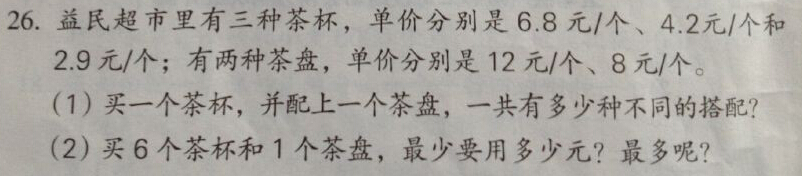 26. 益民超市里有三种茶杯，单价分别是 6.8 元/个、4.2元/个和
2.9 元/个；有两种茶盘，单价分别是 12 元/个、8 元/个。
（1）买一个茶杯，并配上一个茶盘，一共有多少种不同的搭配？
（2）买 6 个茶杯和 1 个茶盘，最少要用多少元？最多呢？